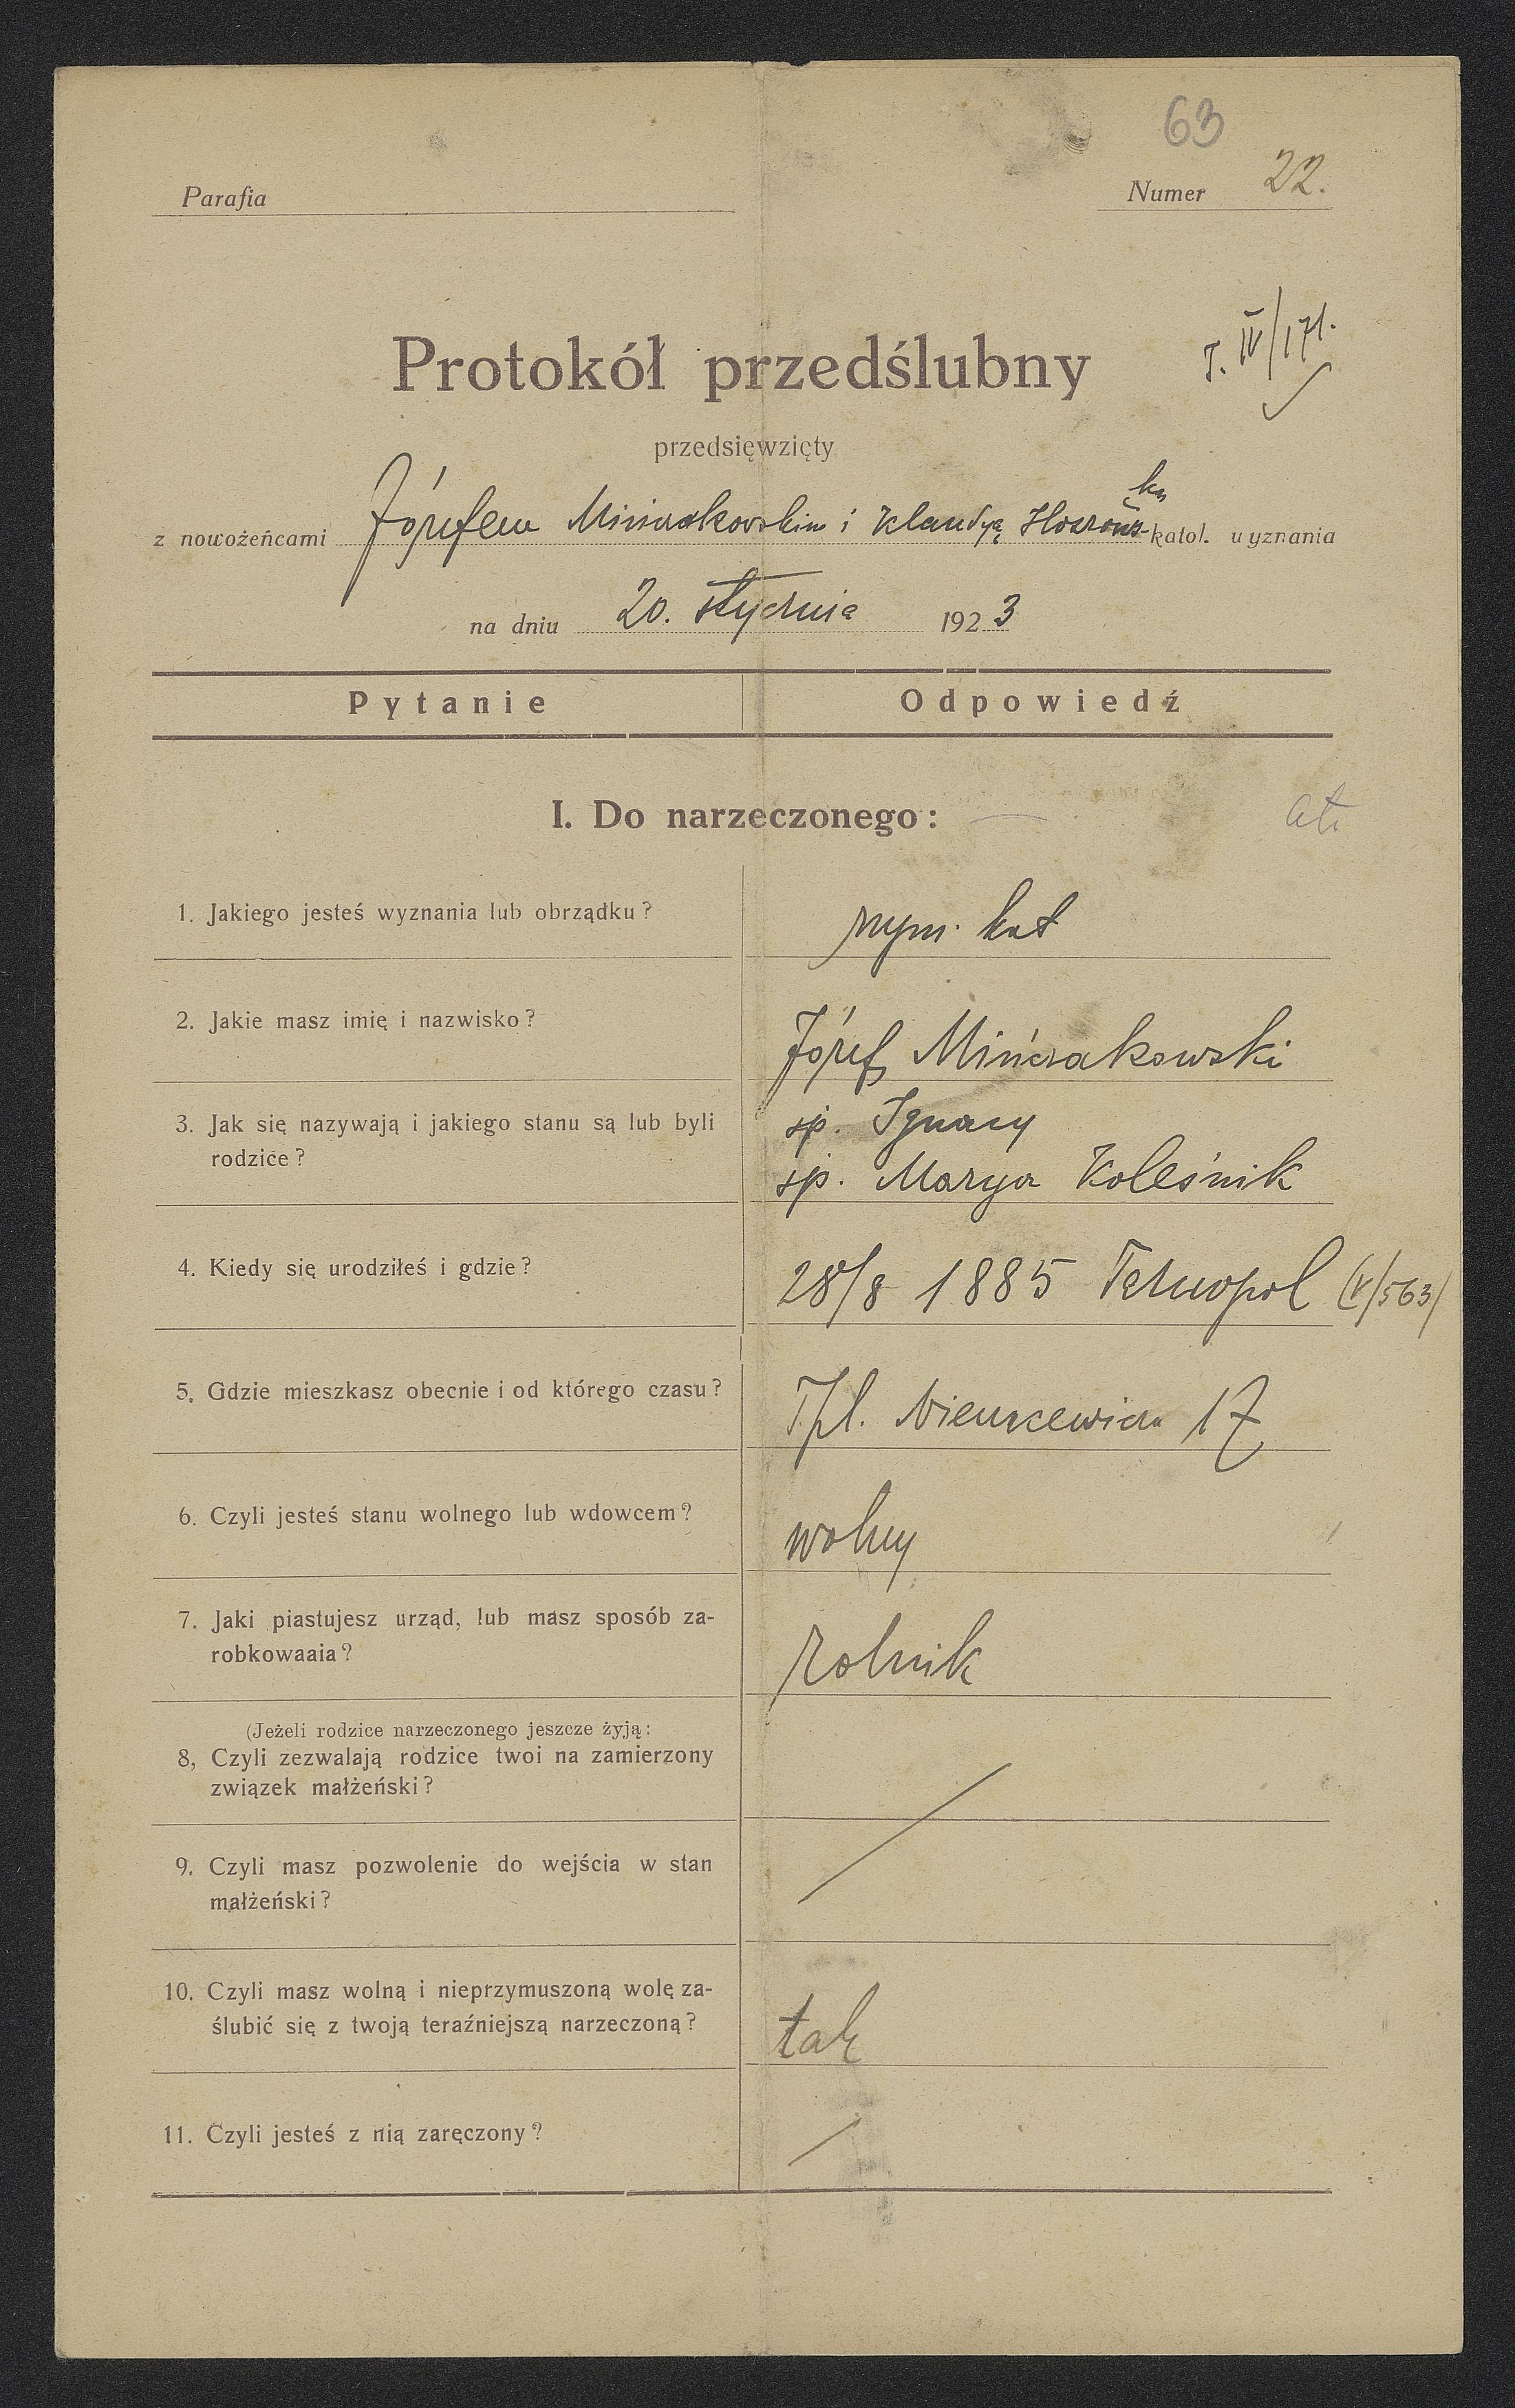 63
Parafia
Numer 22.
T. IV/171.
Protokół przedślubny
przedsięwzięty
z nowożeńcami Józefem Minczakowskim i Klaudyą -katol. wyznania
na dniu 20. stycznia 1923
Pytanie Odpowiedź
I. Do narzeczonego:
1. Jakiego jesteś wyznania lub obrządku? rzym. kat
2. Jakie masz imię i nazwisko? Józef Mińczakowski
3. Jak się nazywają i jakiego stanu są lub byli śp. Ignacy
rodzice? śp. Marya Koleśnik
4. Kiedy się urodziłeś i gdzie? 28/8 1885 Tarnopol (V/563)
5. Gdzie mieszkasz obecnie i od którego czasu? Tpl. 17
6. Czyli jesteś stanu wolnego lub wdowcem? wolny
7. Jaki piastujesz urząd, lub masz sposób za-
robkowaaia? rolnik
(Jeżeli rodzice narzeczonego jeszcze żyją:
8, Czyli zezwalają rodzice twoi na zamierzony
związek małżeński?
9. Czyli masz pozwolenie do wejścia w stan
małżeński?
10. Czyli masz wolną i nieprzymuszoną wolę za-
ślubić się z twoją teraźniejszą narzeczoną? tak
11. Czyli jesteś z nią zaręczony?